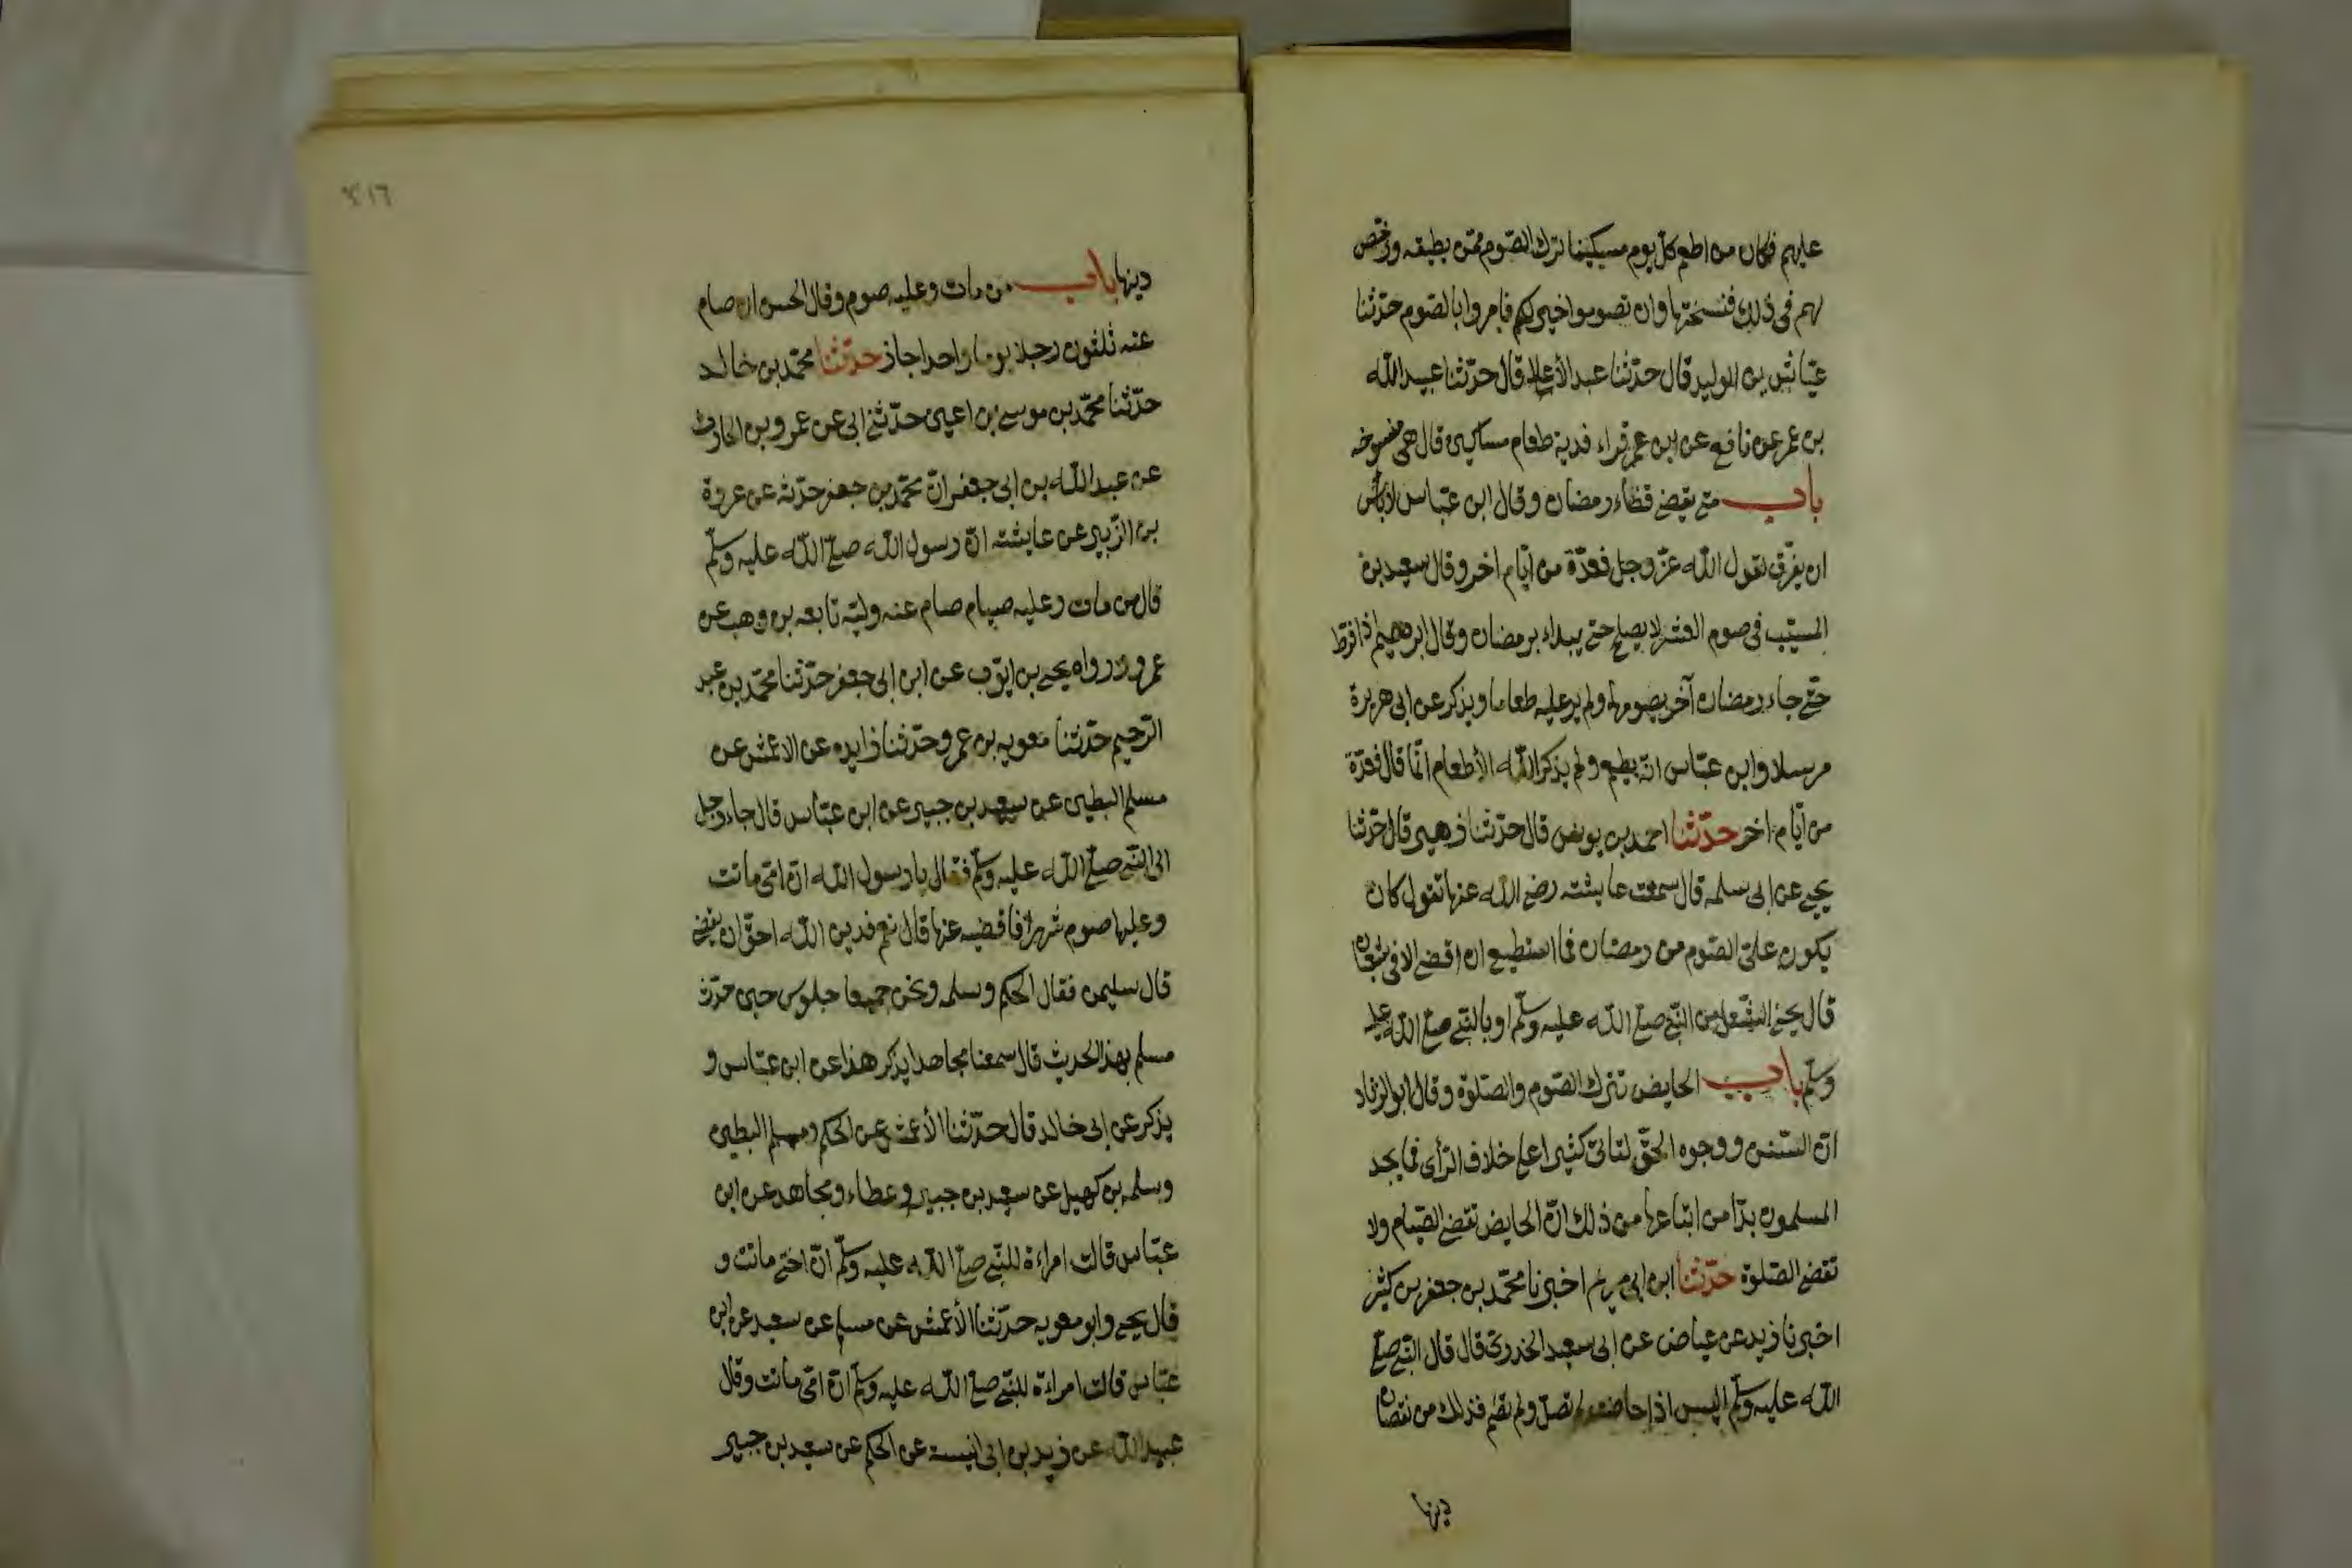 عليهم فكان من اطعم كل يوم مسكينا ترك الصّوم ممّن يطيقه ورخص
لهم فى ذلك فنسختها وان تصوموا خير لكم فامروا بالصّوم حدّثنا
عيّاش بن الوليد قال حدّثنا عبد الأعلا قال حدّثنا عبيد اللّه
بن عمر عن نافع عن ابن عمر قراء فدية طعام مساكين قال هى منسوخه
باب متى يقضى قضاء رمضان وقال ابن عبّاس لا باس
ان يفرّق لقول اللّه عزّ وجل فعدّة من ايّام اخر وقال سعيد بن
المسيّب فى صوم العشر لا يصلح حتى يبداء برمضان وقال ابرهيم اذا فرّط
حتّى جاء رمضان آخر يصومهما ولم ير عليه طعاما ويذكر عن ابى هريرة
مرسلا وابن عبّاس انّه يطعم ولم يذكر اللّه الأطعام انّما قال فعدّة
من ايّام اخر حدّثنا احمد بن يونس قال حدّثنا زهير قال حدّثنا
يحيى عن ابى سلمه قال سمعت عايشته رضى اللّه عنها تقول كان
يكون علىّ الصّوم من رمضان فما استطيع ان اقضى الا فى شعبان
قال يحيى الشّغل من النّبى صلّى اللّه عليه وسلّم او بالنّبى صلّى اللّه عليه
وسلّم باب الحايض تترك الصّوم والصّلوة وقال ابو الزناد
انّ السّنن ووجوه الحقّ لتاتى كثيرا على خلاف الرّأى فما يجد
المسلمون بدّا من اتباعها من ذلك انّ الحايض تقضى الصّيام ولا
تقضى الصّلوة حدّثنا ابن ابى مريم اخبرنا محمّد بن جعفر بن كثير
اخبرنا زيد عن عياض عن ابى سعيد الخدرى قال قال النّبى صلّى
اللّه عليه وسلّم اليس اذا حاضت لم تصلّ ولم تصم فذلك من نقصان
دينها
٣١٦
دينها باب من مات وعليه صوم وقال الحسن ان صام
عنه ثلثون رجلا يوما واحدا جاز حدّثنا محمّد بن خالد
حدّثنا محمّد بن موسى بن اعين حدّثنى ابى عن عمرو بن الحارث
عن عبد اللّه بن ابى جعفر انّ محمّد بن جعفر حدّثه عن عروة
بن الزّبير عن عايشته انّ رسول اللّه صلّى اللّه عليه وسلّم
قال من مات وعليه صيام صام عنه وليّه تابعه بن وهب عن
عمرو ورواه يحيى بن ايّوب عن ابن ابى جعفر حدّثنا محمّد بن عبد
الرّحيم حدّثنا معويه بن عمرو حدّثنا زايده عن الاعمش عن
مسلم البطين عن سعيد بن جبير عن ابن عبّاس قال جاء رجل
الى النّبى صلّى اللّه عليه وسلّم فقال يا رسول اللّه انّ امّى ماتت
وعليها صوم شهر افاقضيه عنها قال نعم فدين اللّه احقّ ان يقضى
قال سليمن فقال الحكم وسلمه ونحن جميعا جلوس حين حدّث
مسلم بهذا الحديث قال سمعنا مجاهدا يذكر هذا عن ابن عبّاس و
يذكر عن ابى خالد قال حدّثنا الأعمش عن الحكم ومسلم البطين
وسلمه بن كهيل عن سعيد بن جبير وعطاء ومجاهد عن ابن
عبّاس قالت امراءة للنّبى صلّى اللّه عليه وسلّم انّ اختى ماتت و
قال يحيى وابو معويه حدّثنا الأعمش عن مسلم عن سعيد عن ابن
عبّاس قالت امراءة للنّبى صلّى اللّه عليه وسلّم انّ امّى ماتت وقال
عبيد اللّه عن زيد بن ابى انيسة عن الحكم عن سعيد بن جبير